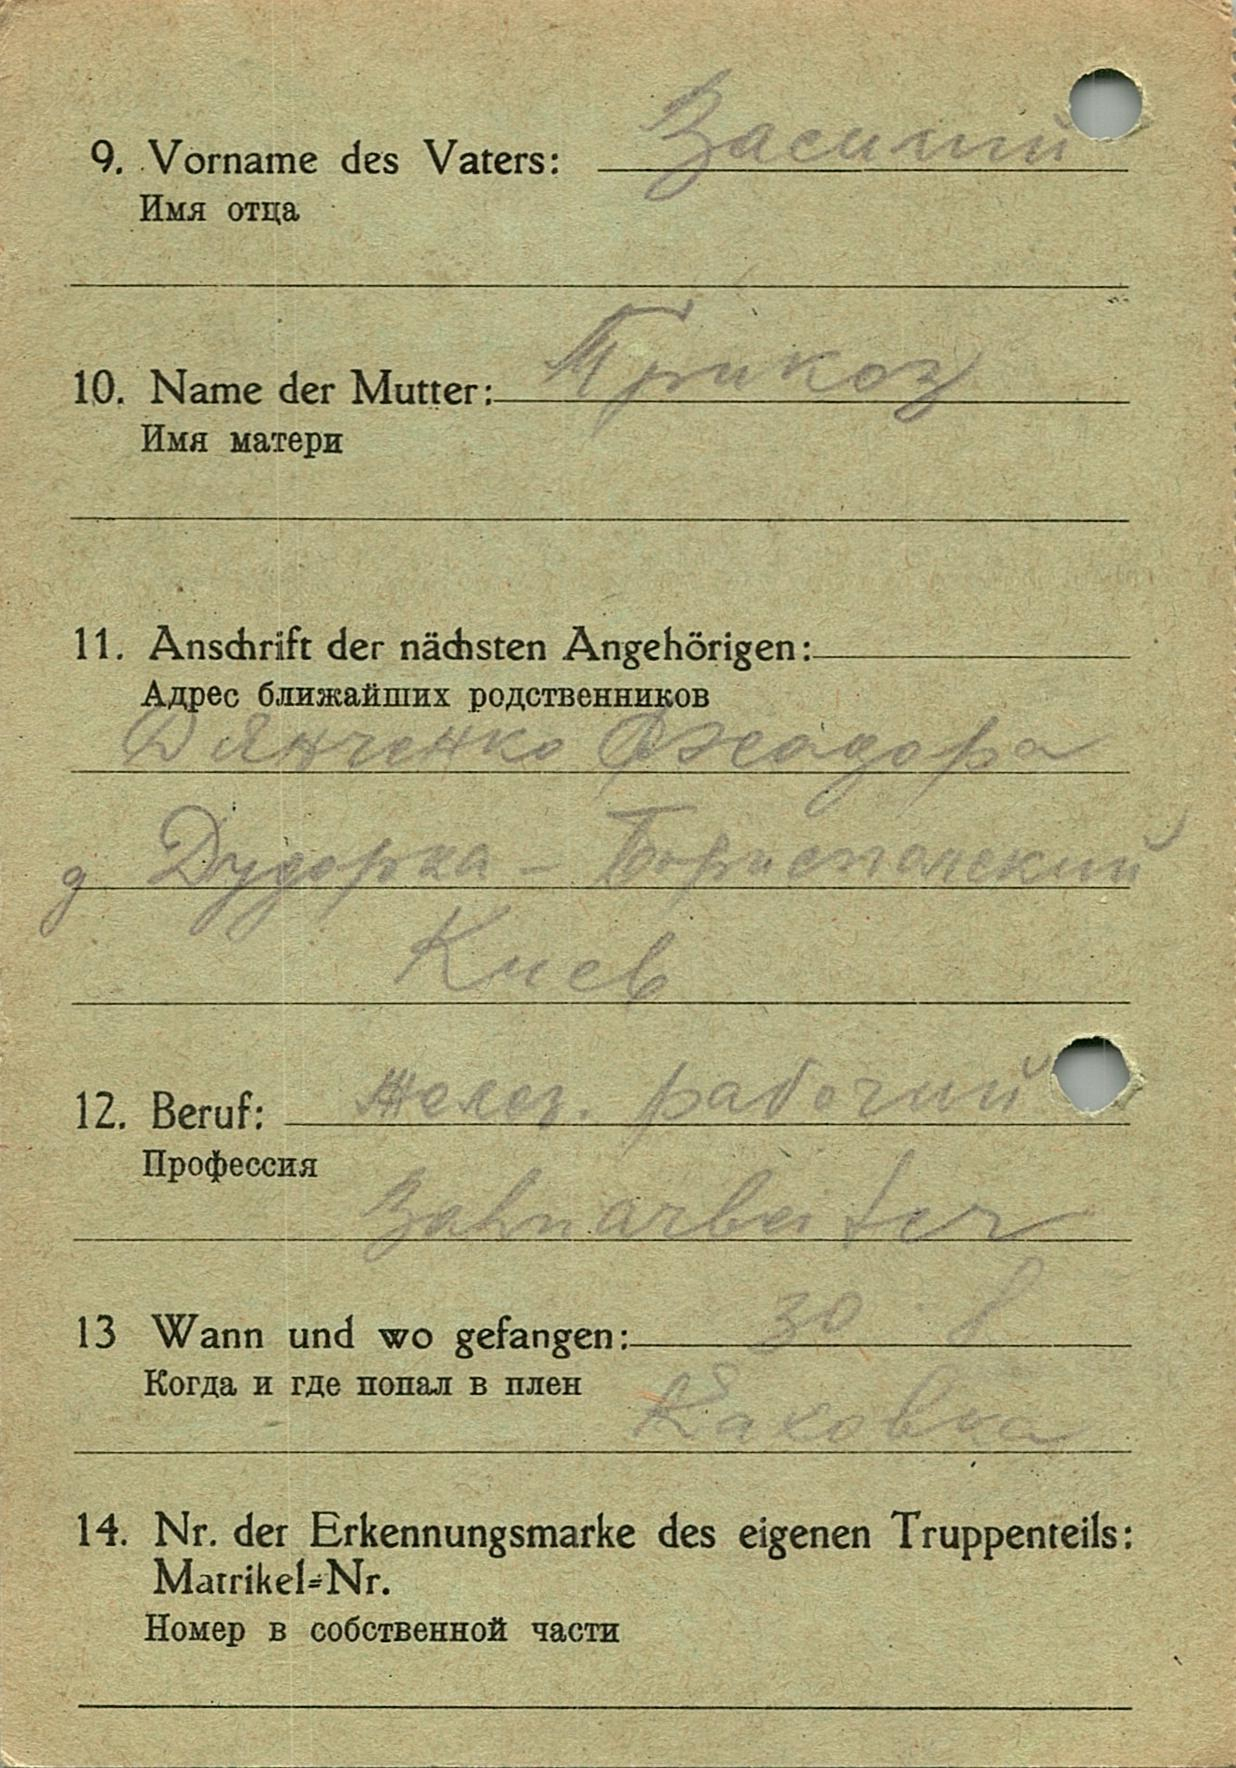 9. Vorname des Vaters: Василий
Имя отца
10. Name der Mutter: Прикоз
Имя матери
11. Anschrift der nächsten Angehörigen:
Адрес ближайших родственников
Дянченко Феодора
д Дударка - Бориспольский
Киев
12. Beruf: Желез. рабочий
Профессия
Bahnarbeiter
13 Wann und wo gefangen: 30. 8
Когда и где попал в плен
Каховка
14. Nr. der Erkennungsmarke des eigenen Truppenteils:
Matrikel=Nr.
Номер в собственной части